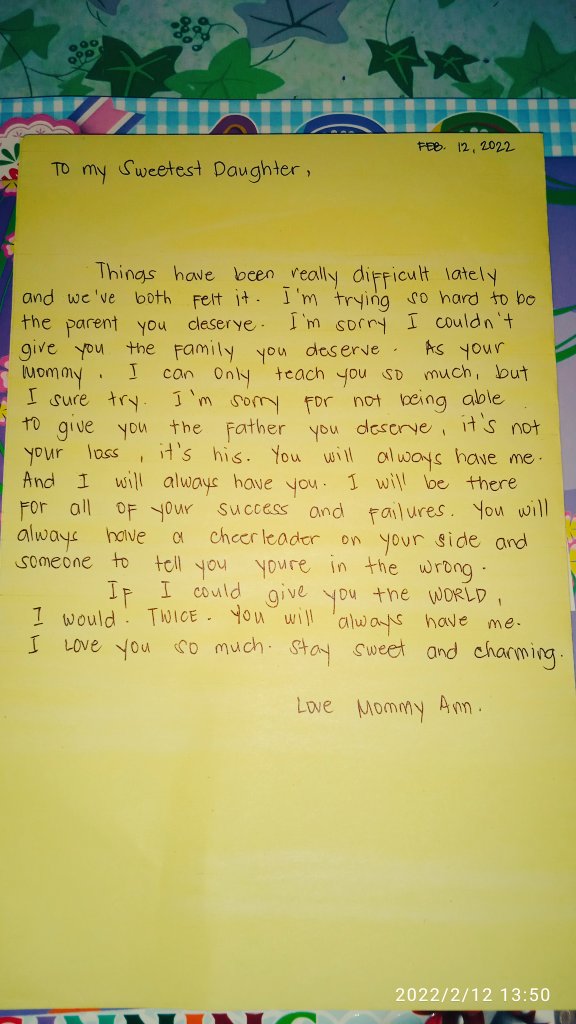 FEB. 12, 2022
To my Sweetest Daughter,
Things have been really difficult lately
and we've both felt it. I'm trying so hard to be
the parent you deserve. I'm sorry I couldn't
give you the family you deserve. As your
Mommy, I can only teach you so much, but
I sure try. I'm sorry for not being able
to give you the father you deserve, it's not
your loss, it's his. You will always have me.
And I will always have you. I will be there
for all of your success and failures. You will
always have a cheerleader on your side and
someone to tell you youre in the wrong.
If I could give you the WORLD,
I would. TWICE. You will always have me.
I love you so much. Stay sweet and charming.
Love Mommy Ann.
2022/2/12 13:50